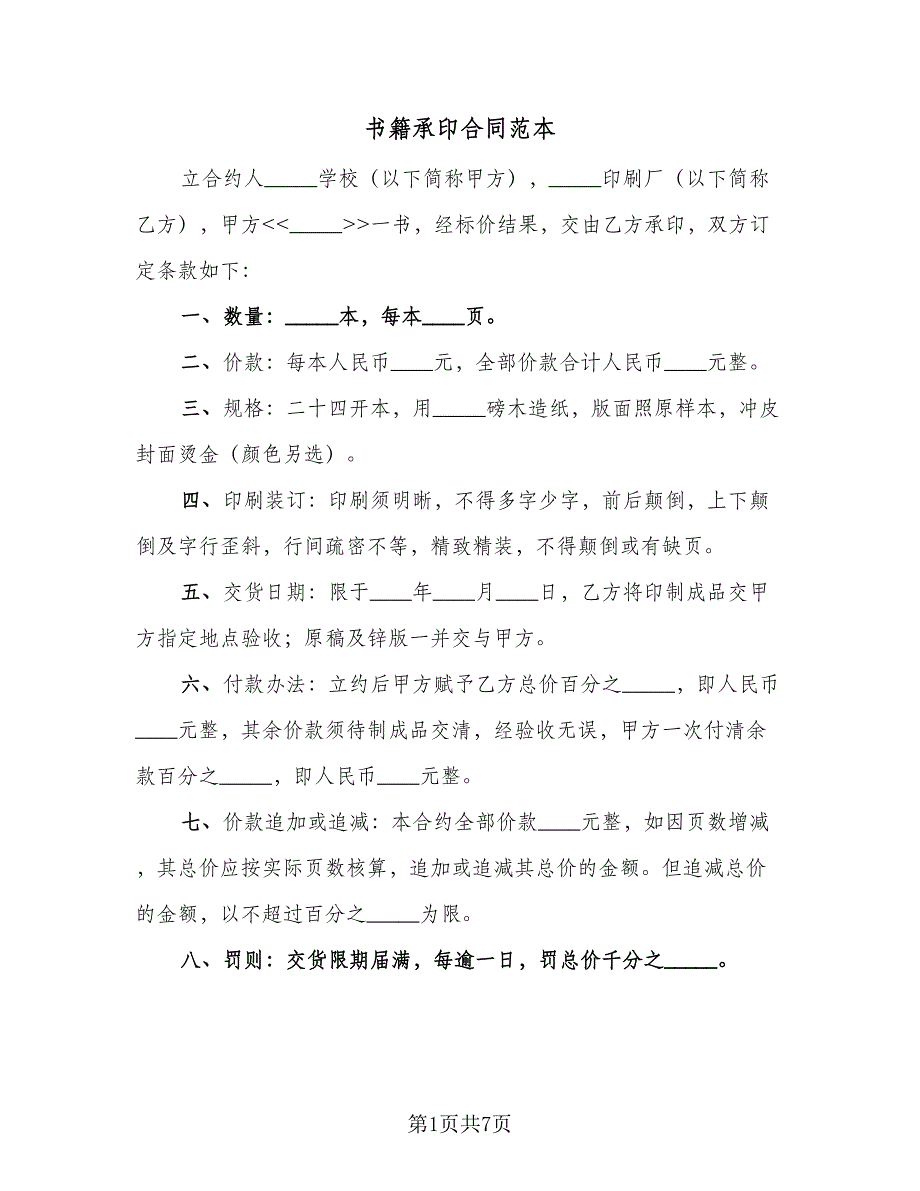 书籍承印合同范本
立合约人_____学校（以下简称甲方），_____印刷厂（以下简称
乙方），甲方<<_____>>一书，经标价结果，交由乙方承印，双方订
定条款如下：
一、数量：_____本，每本____页。
二、价款：每本人民币____元，全部价款合计人民币____元整。
三、规格：二十四开本，用_____磅木造纸，版面照原样本，冲皮
封面烫金（颜色另选）。
四、印刷装订：印刷须明晰，不得多字少字，前后颠倒，上下颠
倒及字行歪斜，行间疏密不等，精致精装，不得颠倒或有缺页。
五、交货日期：限于____年____月____日，乙方将印制成品交甲
方指定地点验收；原稿及锌版一并交与甲方。
六、付款办法：立约后甲方赋予乙方总价百分之_____，即人民币
____元整，其余价款须待制成品交清，经验收无误，甲方一次付清余
款百分之_____，即人民币____元整。
七、价款追加或追减：本合约全部价款____元整，如因页数增减
，其总价应按实际页数核算，追加或追减其总价的金额。但追减总价
的金额，以不超过百分之_____为限。
八、罚则：交货限期届满，每逾一日，罚总价千分之_____。
第1页共7页